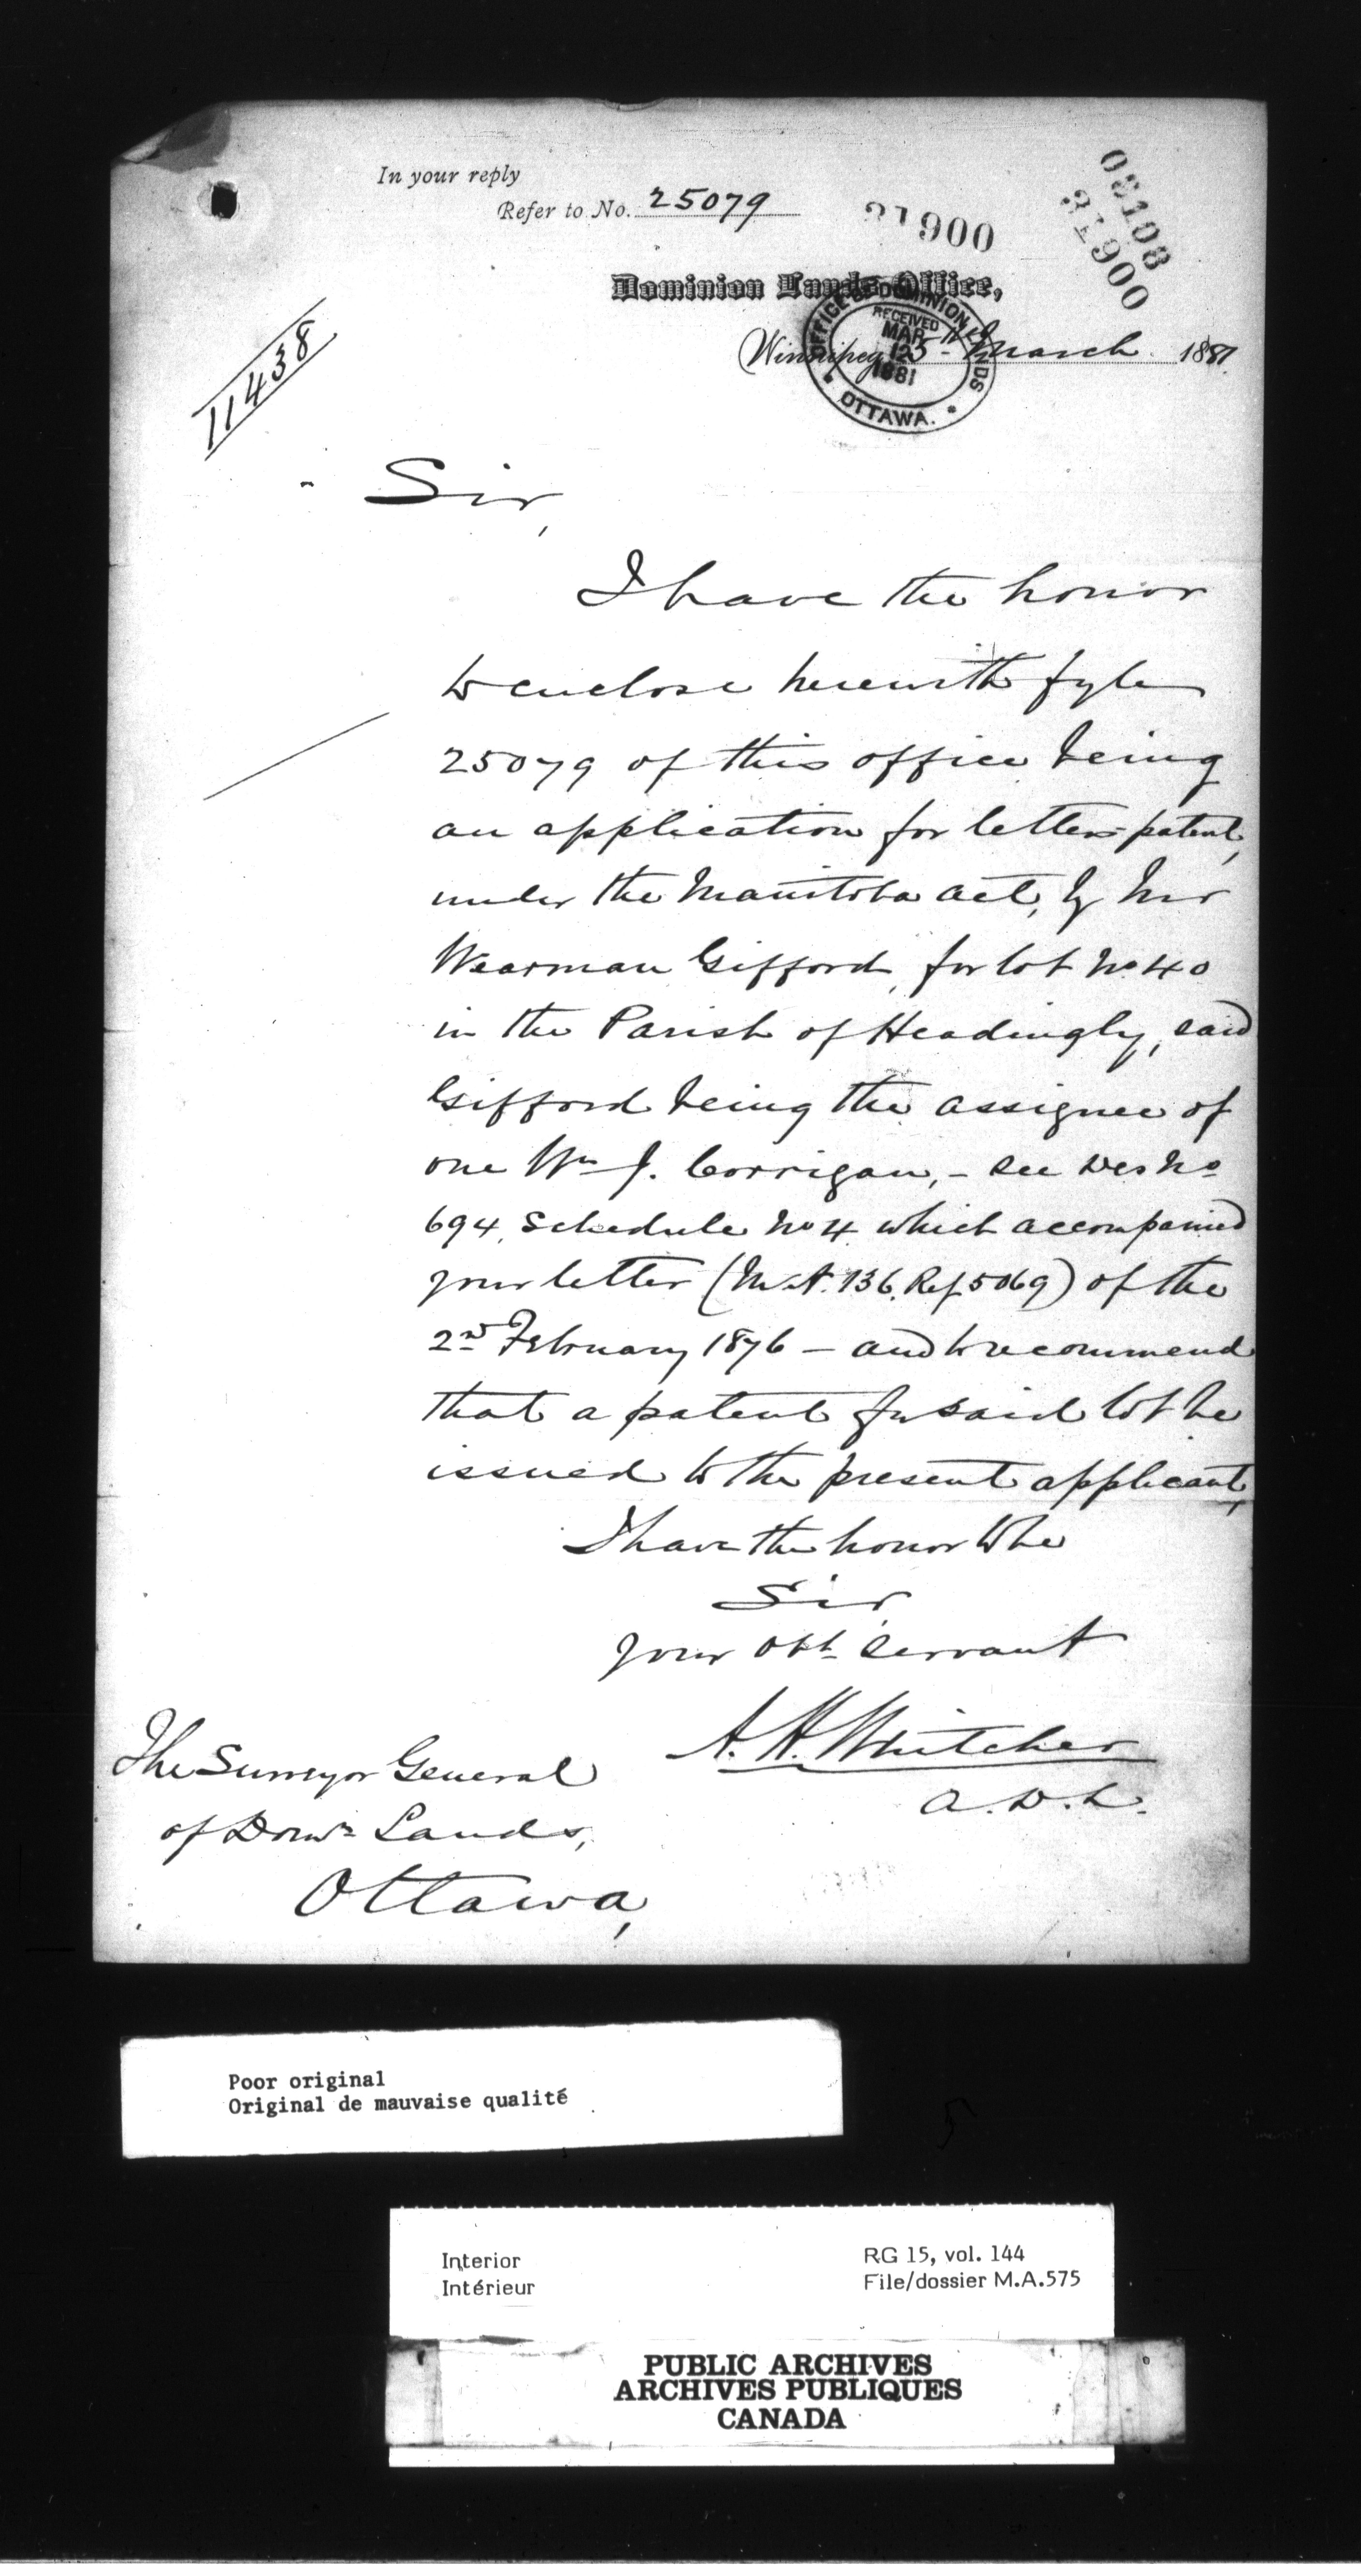 In your reply
Refer to No. 25079
31900
08108
31900
Dominion Lands Office,
Winnipeg 5th March 1881.
OFFICE OF DOMINION LANDS
RECEIVED
MAR
12
1881
OTTAWA.
11438
Sir,
I have the honor
to enclose herewith fyle
25079 of this office being
an application for letters patent,
under the Manitoba Act, by Mr
Wearman Gifford, for lot No 40
in the Parish of Headingly, said
Gifford being the assignee of
one Wm J. Corrigan, - see Des No
694, Schedule No 4 which accompanied
your letter (M.A. 136. Ref 5069) of the
2nd February 1876 - and to recommend
that a patent for said lot be
issued to the present applicant,
I have the honor to be
Sir,
your obt servant
A. H. Whitcher
A.D.L.
The Surveyor General
of Domn Lands,
Ottawa,
Poor original
Original de mauvaise qualité
5
Interior
Intérieur
RG 15, vol. 144
File/dossier M.A.575
PUBLIC ARCHIVES
ARCHIVES PUBLIQUES
CANADA